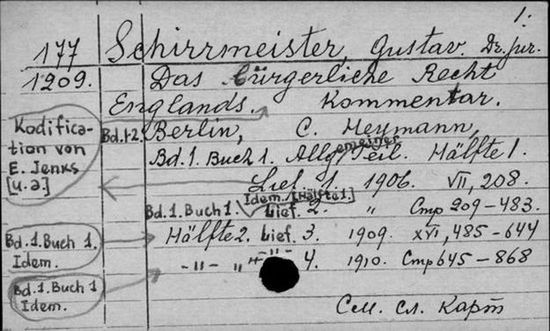 1:
177 Schirrmeister, Gustav. Dr. jur.
1909. Das bürgerliche Recht
Englands. Kommentar.
Kodifica-
tion von
E. Jenks
[u. a]
Bd. 1-2. Berlin, C. Heymann,
Bd. 1. Buch 1. Allgemeiner Teil. Hälfte 1.
Lief. 1. 1906. VII, 208.
Idem. / [Hälfte 1.]
Bd. 1. Buch 1. Lief. 2. " Стр 209-483.
Bd. 1. Buch 1.
Idem.
Hälfte 2. Lief. 3. 1909. XVI, 485-644
-"- "-"- 4. 1910. Стр 645-868
Bd. 1. Buch 1
Idem.
См. сл. карт